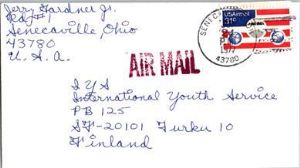 Jerry Gardner Jr.
Rd# 1
Senecaville, Ohio
43780
U. S. A.
USAirmail
31c
SENECA
1977
43780
AIR MAIL
IYS
International Youth Service
PB 125
SF-20101 Turku 10
Finland